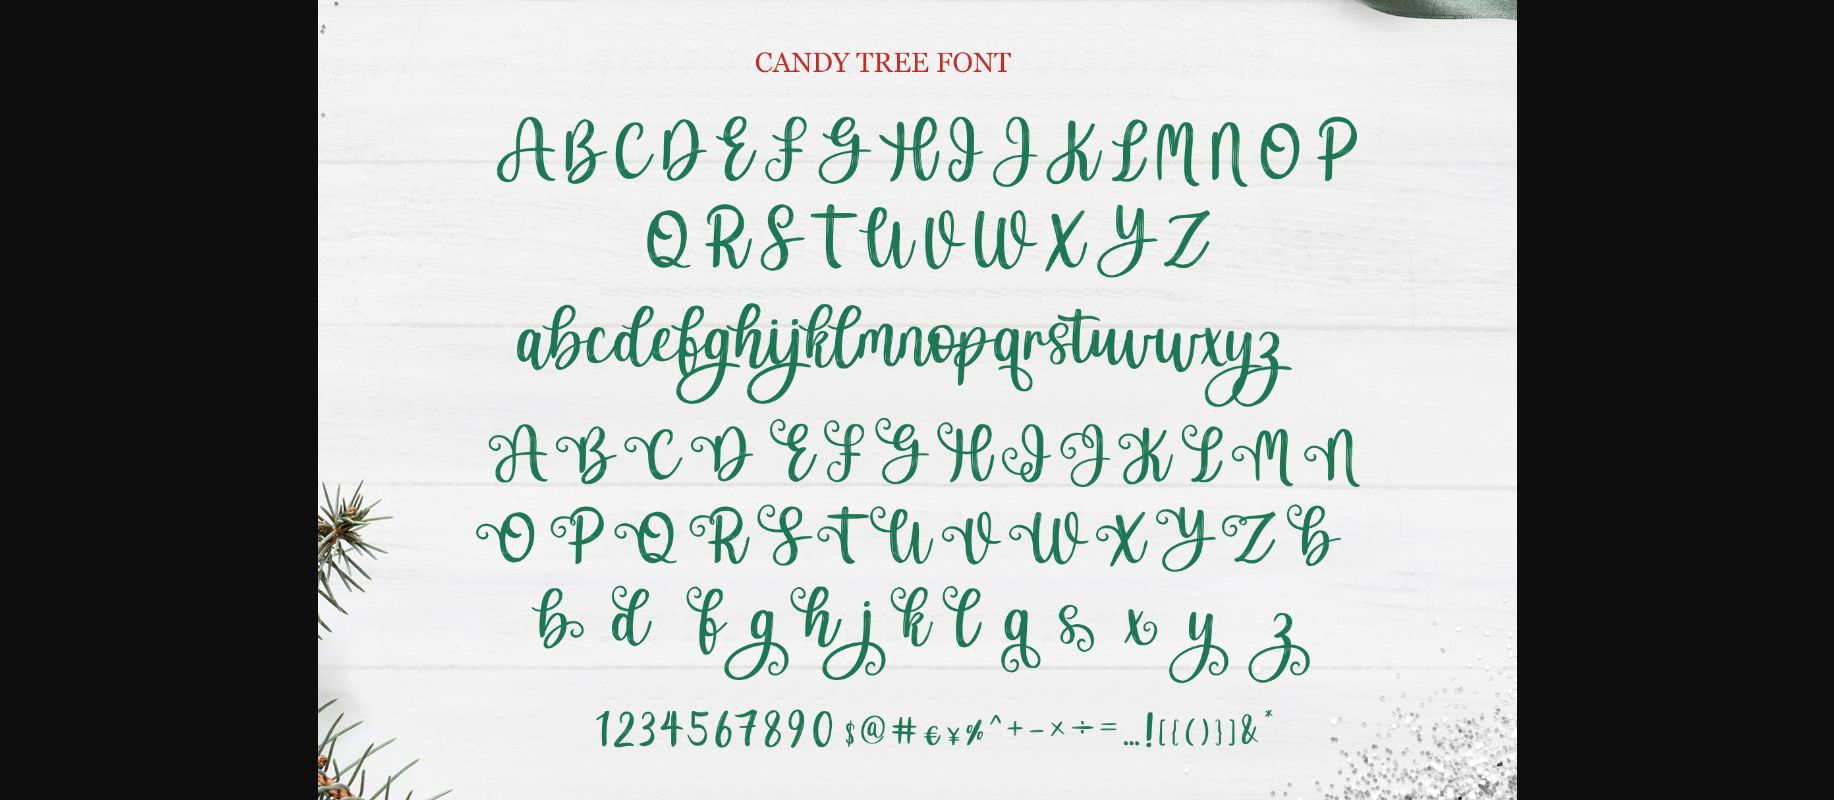 CANDY TREE FONT
A B C D E F G H I J K L M N O P
Q R S T U V W X Y Z
abcdefghijklmnopqrstuvwxyz
A B C D E F G H I J K L M N
O P Q R S T U V W X Y Z b
b d f g h j k l q s x y z
1234567890 $@#€¥%^+-×÷=...![{()}]&*